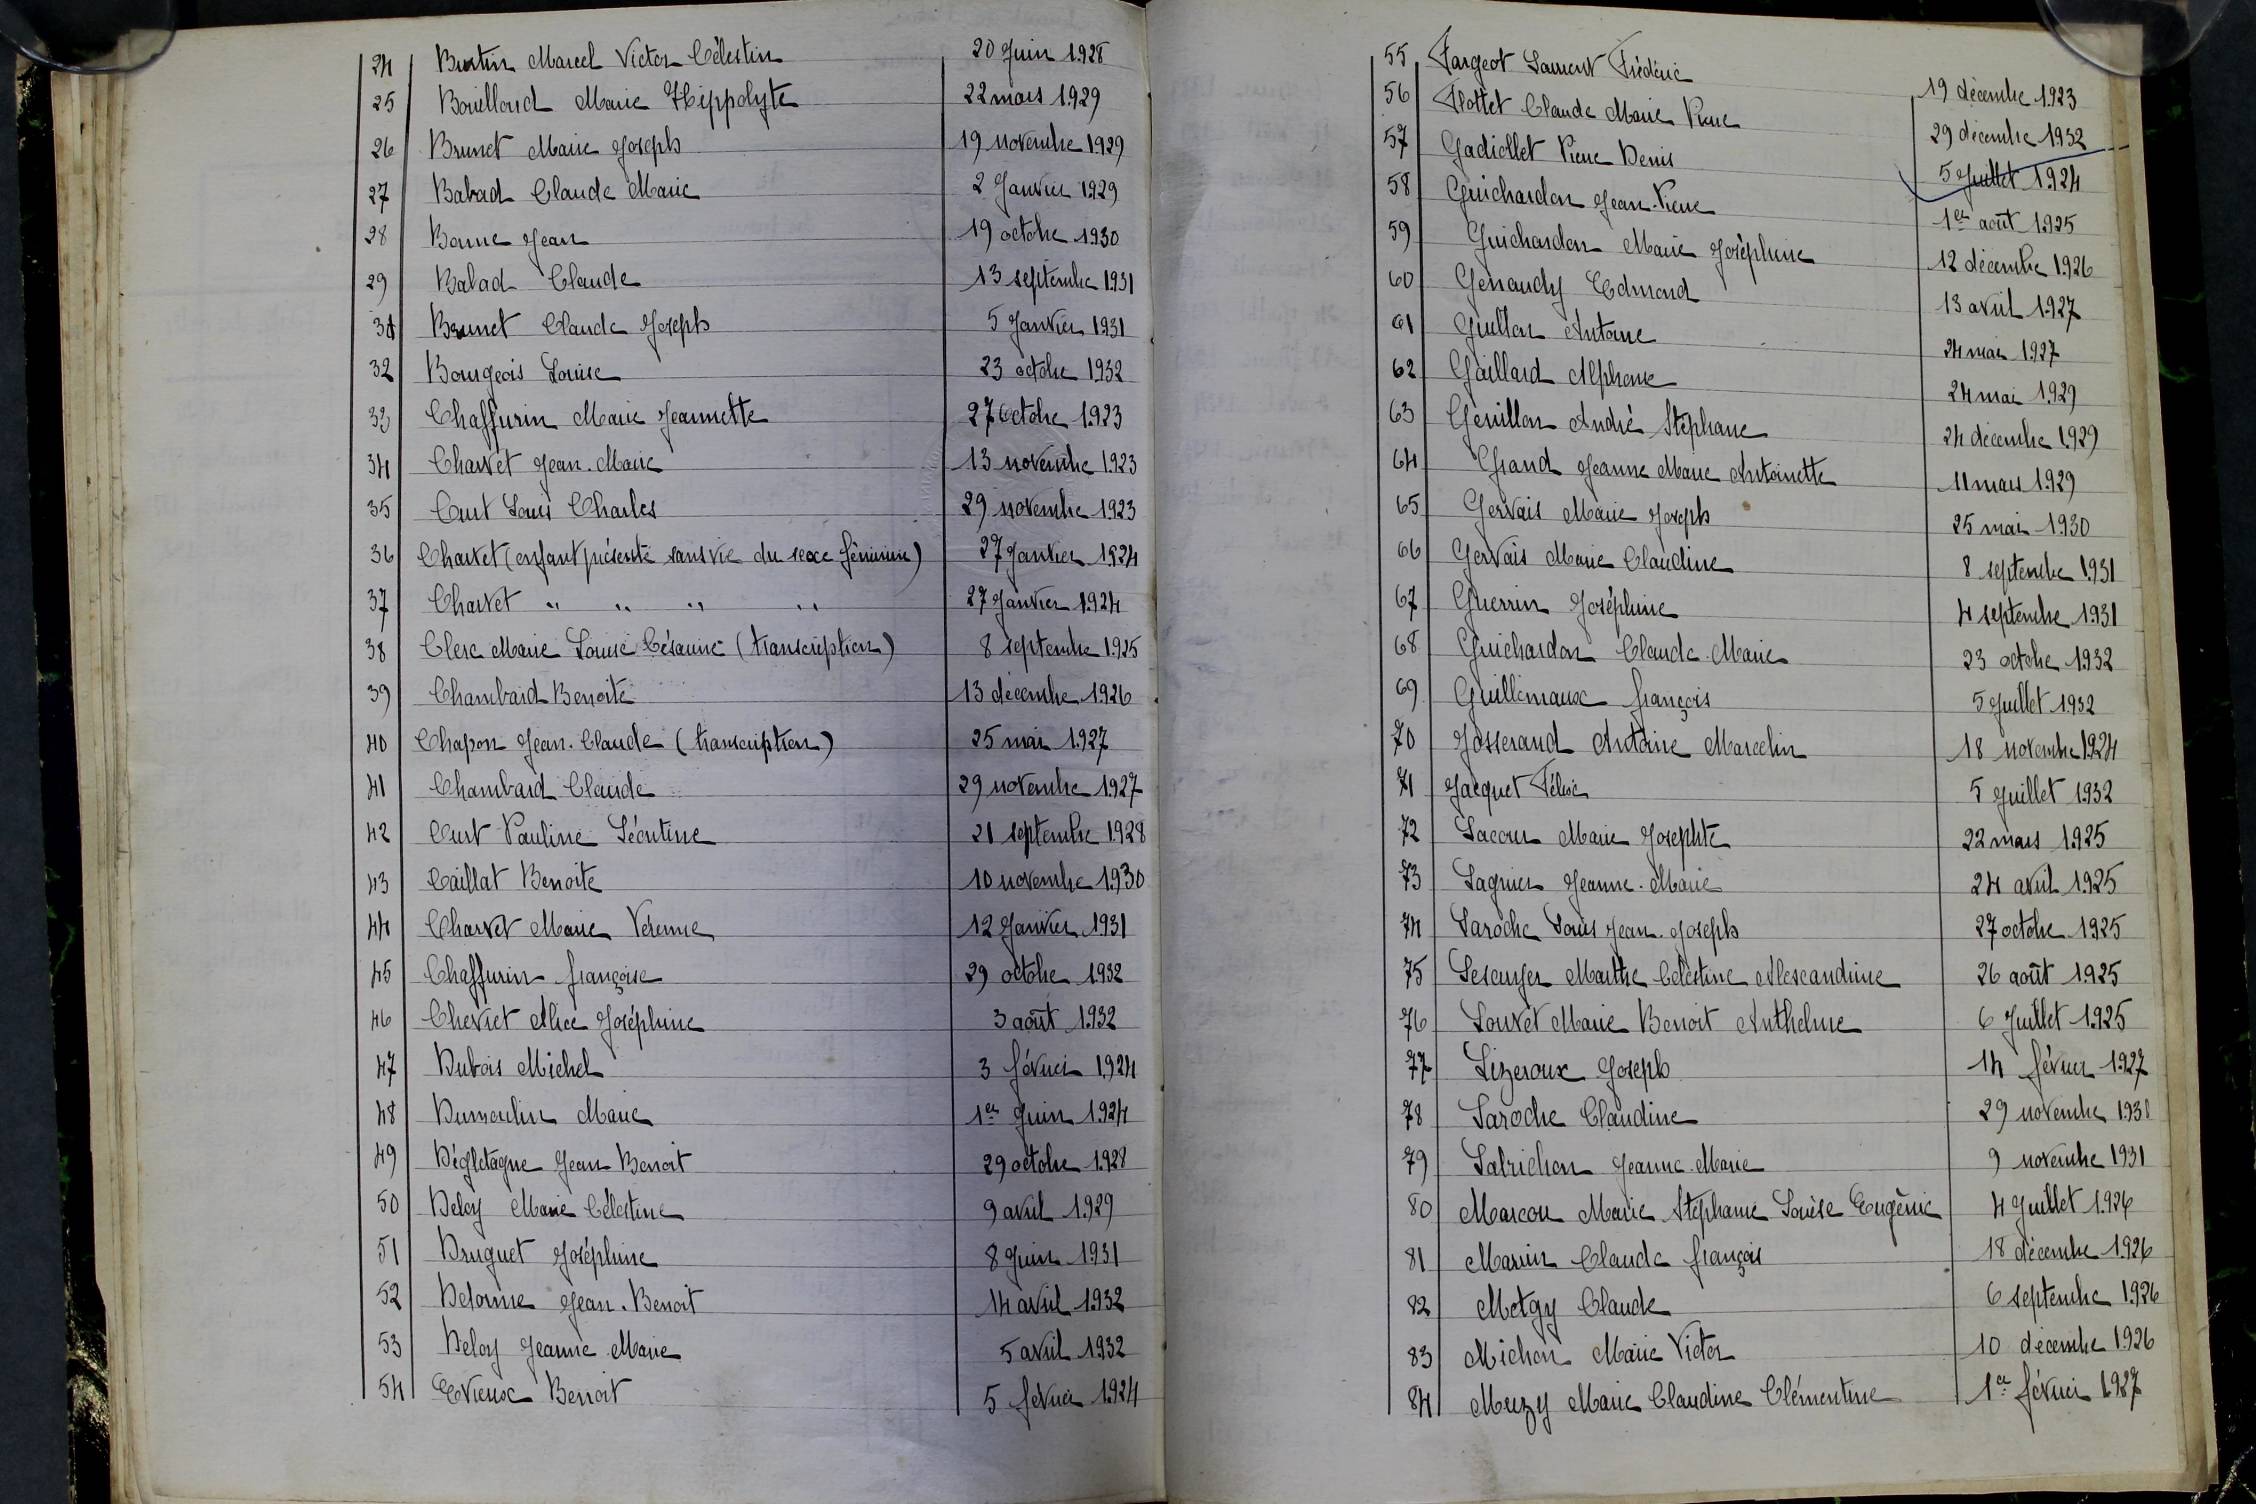 24 Burtin Marcel Victor Célestin 20 Juin 1928
25 Bouilloud Marie Hippolyte 22 mars 1929
26 Brunet Marie Joseph 19 novembre 1929
27 Babad Claude Marie 2 Janvier 1929
28 Bonne Jean 19 octobre 1930
29 Balad Claude 13 septembre 1931
31 Brunet Claude Joseph 5 Janvier 1931
32 Bourgeois Louise 23 octobre 1932
33 Chaffurin Marie Jeannette 27 Octobre 1923
34 Charvet Jean-Marie 13 novembre 1923
35 Curt Louis Charles 29 novembre 1923
36 Charvet (enfant présenté sans vie du sexe féminin) 27 Janvier 1924
37 Charvet " " " " 27 Janvier 1924
38 Clerc Marie Louise Césarine (transcription) 8 septembre 1925
39 Chambard Benoite 13 décembre 1926
40 Chapon Jean-Claude (transcription) 25 mai 1927
41 Chambard Claude 29 novembre 1927
42 Curt Pauline Léontine 21 septembre 1928
43 Caillat Benoite 10 novembre 1930
44 Charvet Marie 12 Janvier 1931
45 Chaffurin françoise 29 octobre 1932
46 Chevict Alice Joséphine 3 août 1932
47 Dubois Michel 3 février 1924
48 Dumoulin Marie 1er Juin 1924
49 Dégletagne Jean Benoit 29 octobre 1928
50 Deloy Marie Célestine 9 avril 1929
51 Druguet Joséphine 8 Juin 1931
52 Delorme Jean-Benoit 14 avril 1932
53 Deloy Jeanne Marie 5 avril 1932
54 Evieux Benoit 5 février 1924
55 Fargeot Laurent Frédéric 19 décembre 1923
56 Flottet Claude Marie Pierre 29 décembre 1932
57 Gadiollet Pierre Denis 5 Juillet 1924
58 Guichardon Jean-Pierre 1er août 1925
59 Guichardon Marie Joséphine 12 décembre 1926
60 Genaudy Edmond 13 avril 1927
61 Guillon Antoine 24 mai 1927
62 Gaillard Alphonse 24 mai 1929
63 Génillon André Stéphane 24 décembre 1929
64 Grand Jeanne Marie Antoinette 11 mars 1929
65 Gervais Marie Joseph 25 mai 1930
66 Gervais Marie Claudine 8 septembre 1931
67 Guerrin Joséphine 4 septembre 1931
68 Guichardon Claude Marie 23 octobre 1932
69 Guillemaux françois 5 Juillet 1932
70 Josserand Antoine Marcelin 18 novembre 1924
71 Jacquet Félix 5 Juillet 1932
72 Lacour Marie Josephte 22 mars 1925
73 Lagnier Jeanne-Marie 24 avril 1925
74 Laroche Louis Jean-Joseph 27 octobre 1925
75 Lescuyer Marthe Célestine Alexcandrine 26 août 1925
76 Louvet Marie Benoit Anthelme 6 Juillet 1925
77 Lizeroux Joseph 14 février 1927
78 Laroche Claudine 29 novembre
79 Labrichon Jeanne-Marie 9 novembre 1931
80 Marcou Marie Stéphanie Louise Eugénie 4 Juillet 1926
81 Marin Claude françois 18 décembre 1926
82 Metgy Claude 6 septembre 1926
83 Michon Marie Victor 10 décembre 1926
84 Muzy Marie Claudine Clémentine 1er février 1927